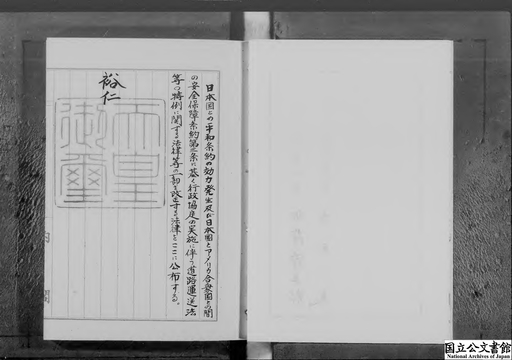 日本国との平和条約の効力発生及び日本国とアメリカ合衆国との間
の安全保障条約第三条に基く行政協定の実施に伴う道路運送法
等の特例に関する法律等の一部を改正する法律をここに公布する。
裕仁
天皇
御璽
内閣
国立公文書館
National Archives of Japan